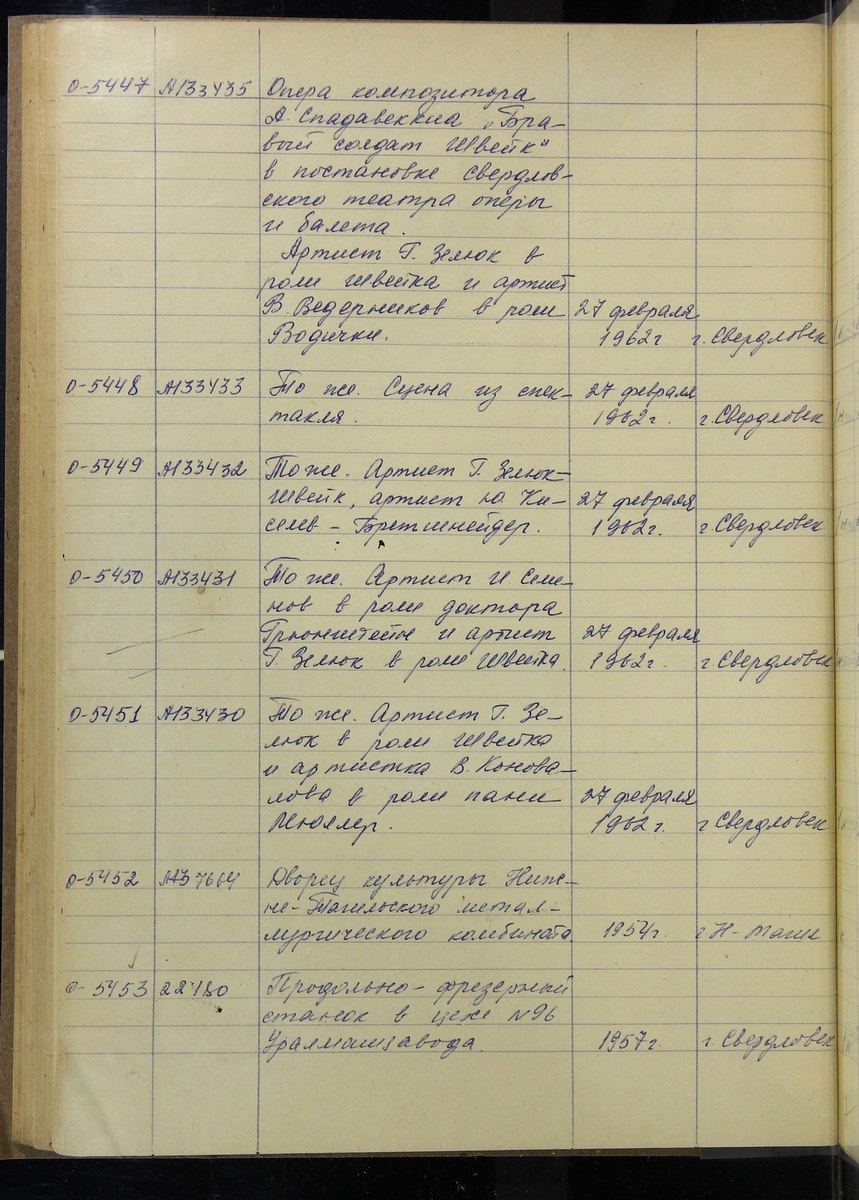 0-5447 А133435 Опера композитора
А. Спадавеккиа „Бра-
вый солдат Швейк"
в постановке Свердлов-
ского театра оперы
и балета.
Артист Г. Зелюк в
роли Швейка и артист
В. Ведерников в роли 27 февраля
Водички. 1962г г. Свердловск
0-5448 А133433 То же. Сцена из спек- 27 февраля
такля. 1962г. г. Свердловск
0-5449 А133432 То же. Артист Г. Зелюк-
Швейк, артист Ю Ки- 27 февраля
селев - Бретшнейдер. 1962г. г. Свердловск
0-5450 А133431 То же. Артист И Сем-
нов в роли доктора
Грюнштейн и артист 27 февраля
Г. Зелюк в роли Швейка. 1962г. г. Свердловск
0-5451 А133430 То же. Артист Г. Зе-
люк в роли Швейка
и артистка В. Конова-
лова в роли пани 27 февраля
Мюллер. 1962г. г. Свердловск
0-5452 Дворец культуры Ниж-
не-Тагильского метал-
лургического комбината. 1954г. г. Н-Тагил
0-5453 22180 Продольно-фрезерный
станок в цехе №96
Уралмашзавода. 1957г. г. Свердловск